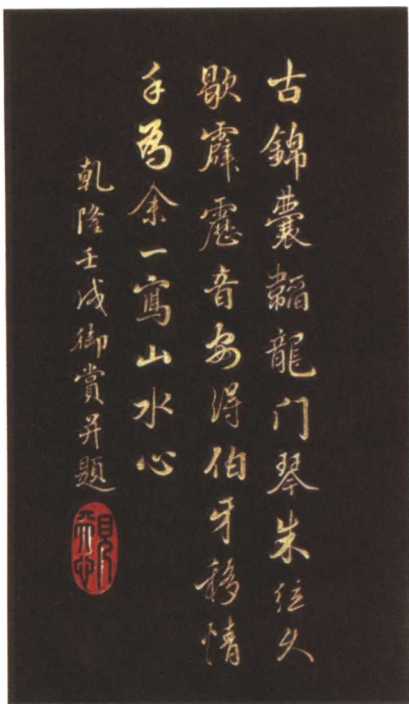 古錦囊韜龍门琴朱絃久
歇霹靂音安得伯牙移情
手為余一寫山水心
乾隆壬戌御賞并題